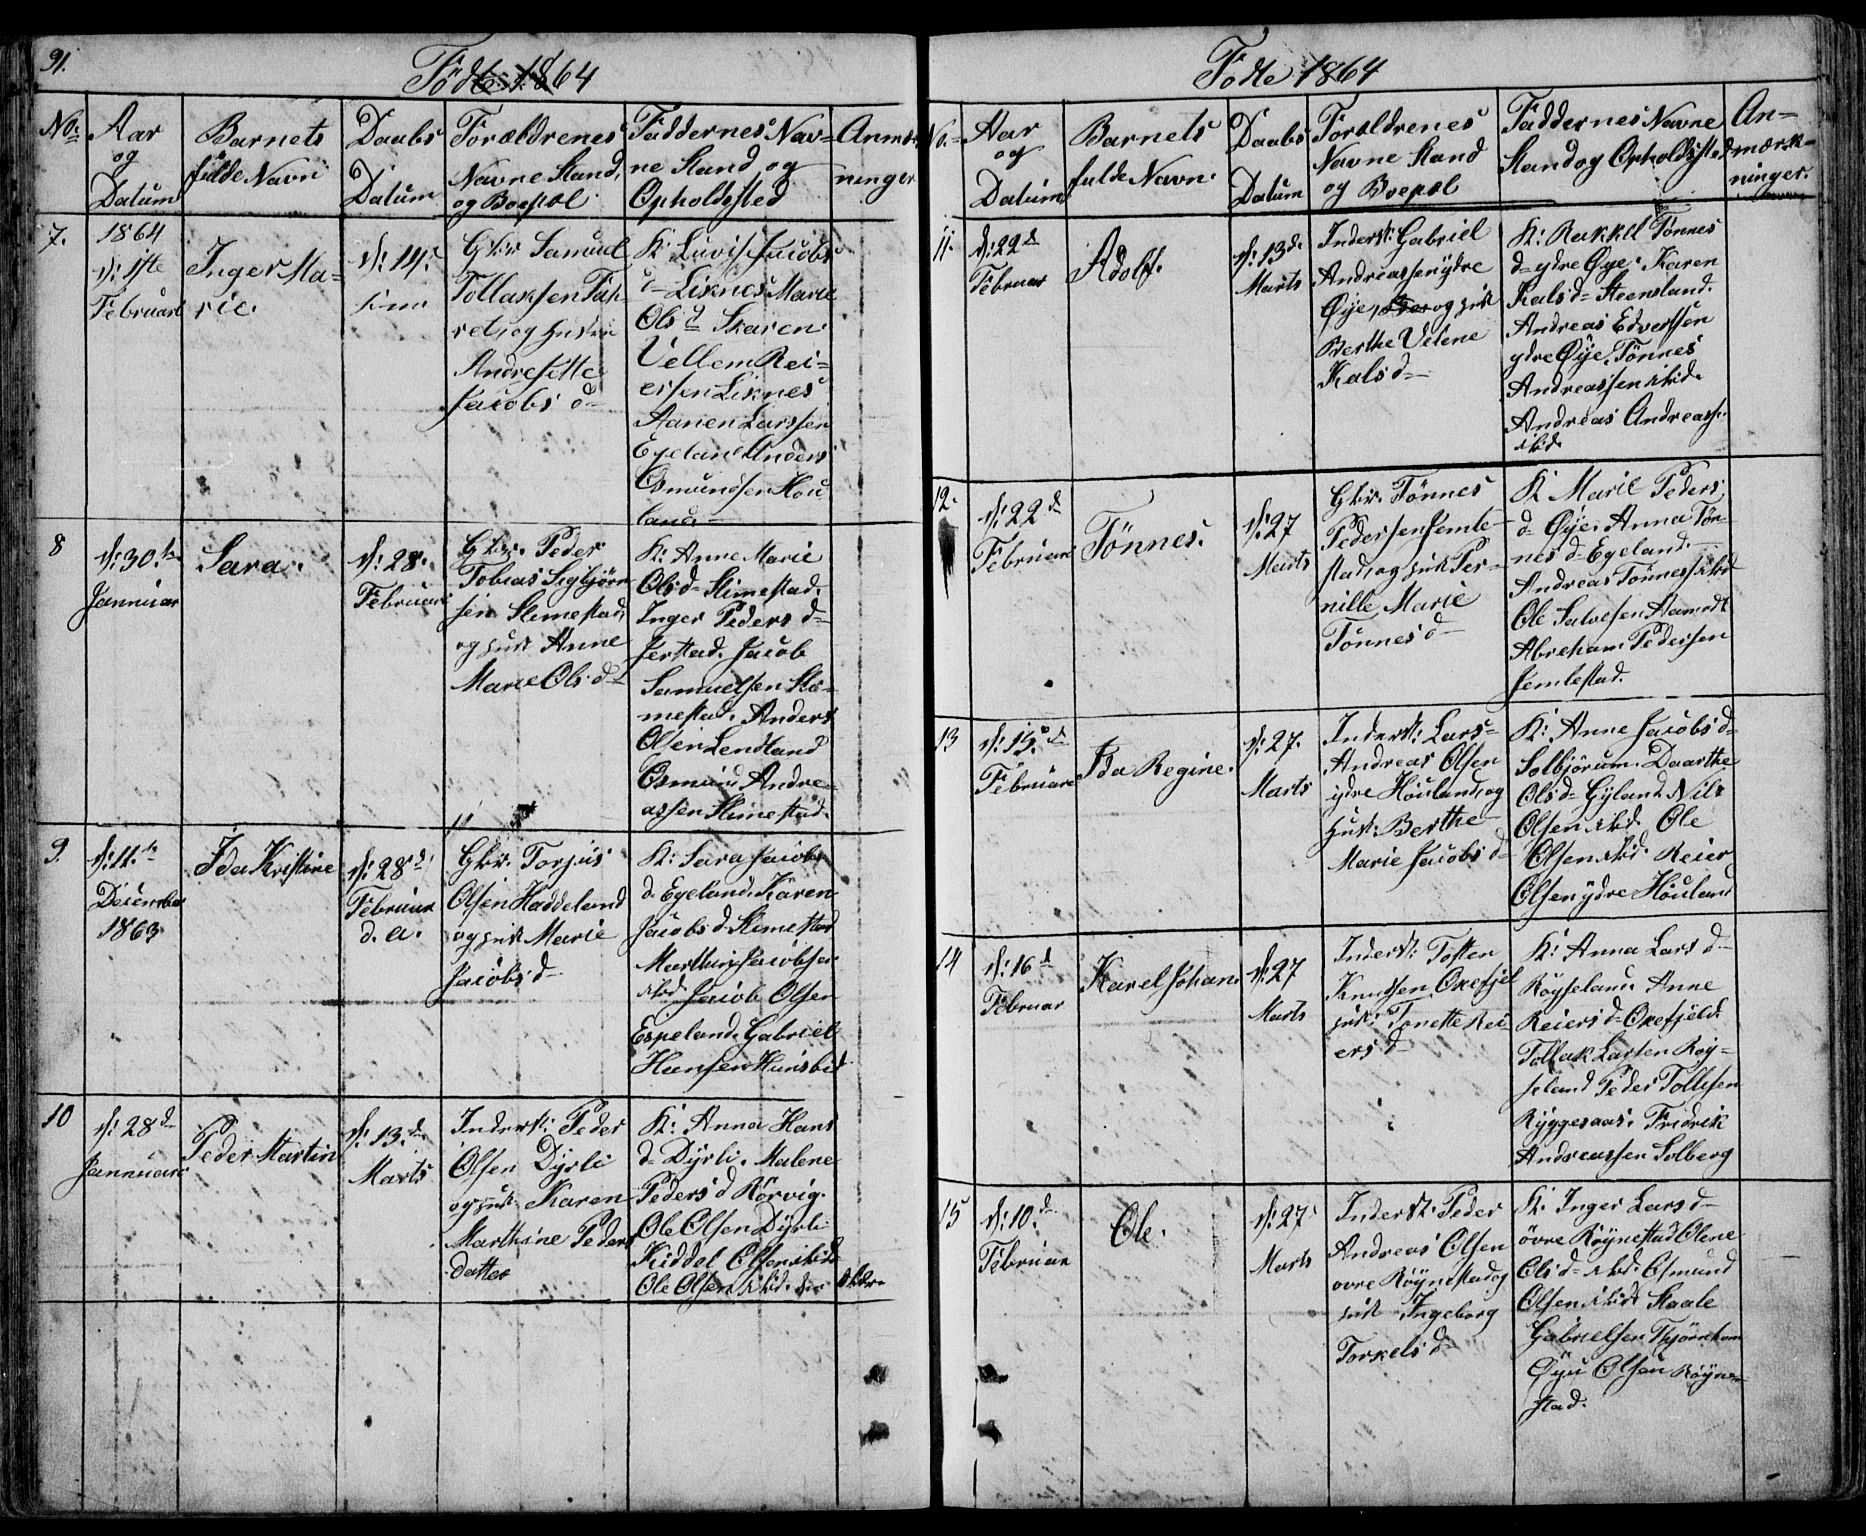 91.
Födte 1864
No:
Aar
og
Datum
Barnets
fulde Navn
Daabs
Datum
Forældrenes
Navne Stand,
og Boepæl
Faddernes Nav-
ne Stand og
Opholdssted
Anmær-
ninger
7.
1864
d: 1ste
Februari
Inger Ma-
rie.
d: 14.
Gbr Samuel
Tollaksen
og hustru
Jacobs d
K: Lovise Jacobs
d Liknes, Marie
Ols d Skaren
Vellem Rei-
ersen Liknes
Aanen Larssen
Egeland Anders
Osmundsen Hou
land.
8
d: 30.te
Jannuar
Sara.
d: 28.
Februari
Gbr. Peder
Tobias Sigbjörn
sen Stimestad,
og hust Anne
Marie Ols d
K: Anne Marie
Ols d Stimestad.
Inger Peders d
Jerstad. Jacob
Samuelsen Sti-
mestad. Anders
Olsen Lendland
Osmund Andre-
assen Stimestad.
9.
d: 11.te
December
1863
Ida Kristine
d: 28d
Februar
d. a.
Gbr. Torjus
Olsen Haddeland
og hust Marie
Jacobs d
K: Sara Jacobs
d. Egeland. Karen
Jacobs d Stimestad
Marthin Jacobsen
ibid Jacob Olsen
Espeland. Gabriel
Hansen Hunsbed
10
d: 28d
Jannuari
Peder Martin
d: 13.d
Marts
Inderst: Peder
Olsen Dyrli
og hust Karen
Marthine Peders
datter
K: Anna Hans
d Dyrli. Malene
Peders d Rörvig.
Ole Olsen Dyrli
Kiddel Olsen ibid
Ole Olsen ibid.
Födte 1864
No.
Aar
og
Datum
Barnets
fulde Navn.
Daabs
Datum
Forældrenes
Navne Stand
og Boepæl
Faddernes Navne
Stand og Opholdssted
An-
mærk-
ninger.
11.
d: 22d
Februar
Adolf.
d: 13d.
Marts
Inderst: Gabriel
Andreassen ydre
Øye, og hust
Berthe Velene
Kals d
K: Rakkel Tønnes
d ydre Øye. Karen
Kals d Steensland.
Andreas Edvertsen
ydre Øye. Tønnes
Andreassen ibid.
Andreas Andreass.
ibid.
12.
d: 22d
Februari
Tönnes.
d: 27
Marts
Gbr. Tönnes
Pedersen Jemle-
stad, og hust Per-
nille Marie
Tönnes d
K Marie Peders
d Øye. Anna Tön-
nes d Egeland.
Andreas Tönnes ibid
Ole Salvesen Aamodt
Abreham Pedersen
Jemlestad.
13
d: 15d
Februari
Ida Regine.
d: 27.
Marts
Inderst: Lars
Andreas Olsen
ydre Höuland, og
hust: Berthe
Marie Jacobs d
K: Anne Jacobs d
Solbjörum. Daarthe
Ols d Gyland Nils
Olsen ibid. Ole
Olsen ibid. Reier
Olsen ydre Höuland
14
d: 16d
Februar
Karel Johan
d: 27
Marts
Inderst: Tosten
Knudsen Oxefjel
hust: Tonette Rei
ers d
K: Anna Lars d
Röyseland. Anne
Reiers d Oxefjeld.
Tollak Larsen Röy-
seland Peder Tollesen
Ryggesaas. Fredrik
Andreassen Solberg
15
d: 10.d
Februar
Ole.
d: 27
Marts
Inderst: Peder
Andreas Olsen
övre Röynestad og
hust Ingeborg
Torkels d
K: Inger Lars d
övre Röynestad Olene
Ols d ibid. Osmund
Olsen ibid Staale
Gabrielsen Tjørnhom
Øyu Olsen Röyne-
stad.